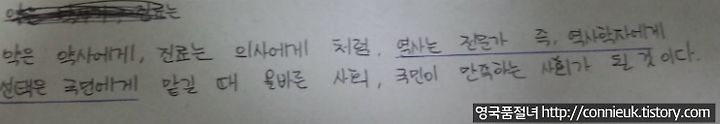 약은 약사에게, 진료는 의사에게 처럼, 역사는 전문가 즉, 역사학자에게
선택은 국민에게 맡길 때 올바른 사회, 국민이 만족하는 사회가 될 것이다.
영국품절녀 http://connieuk.tistory.com